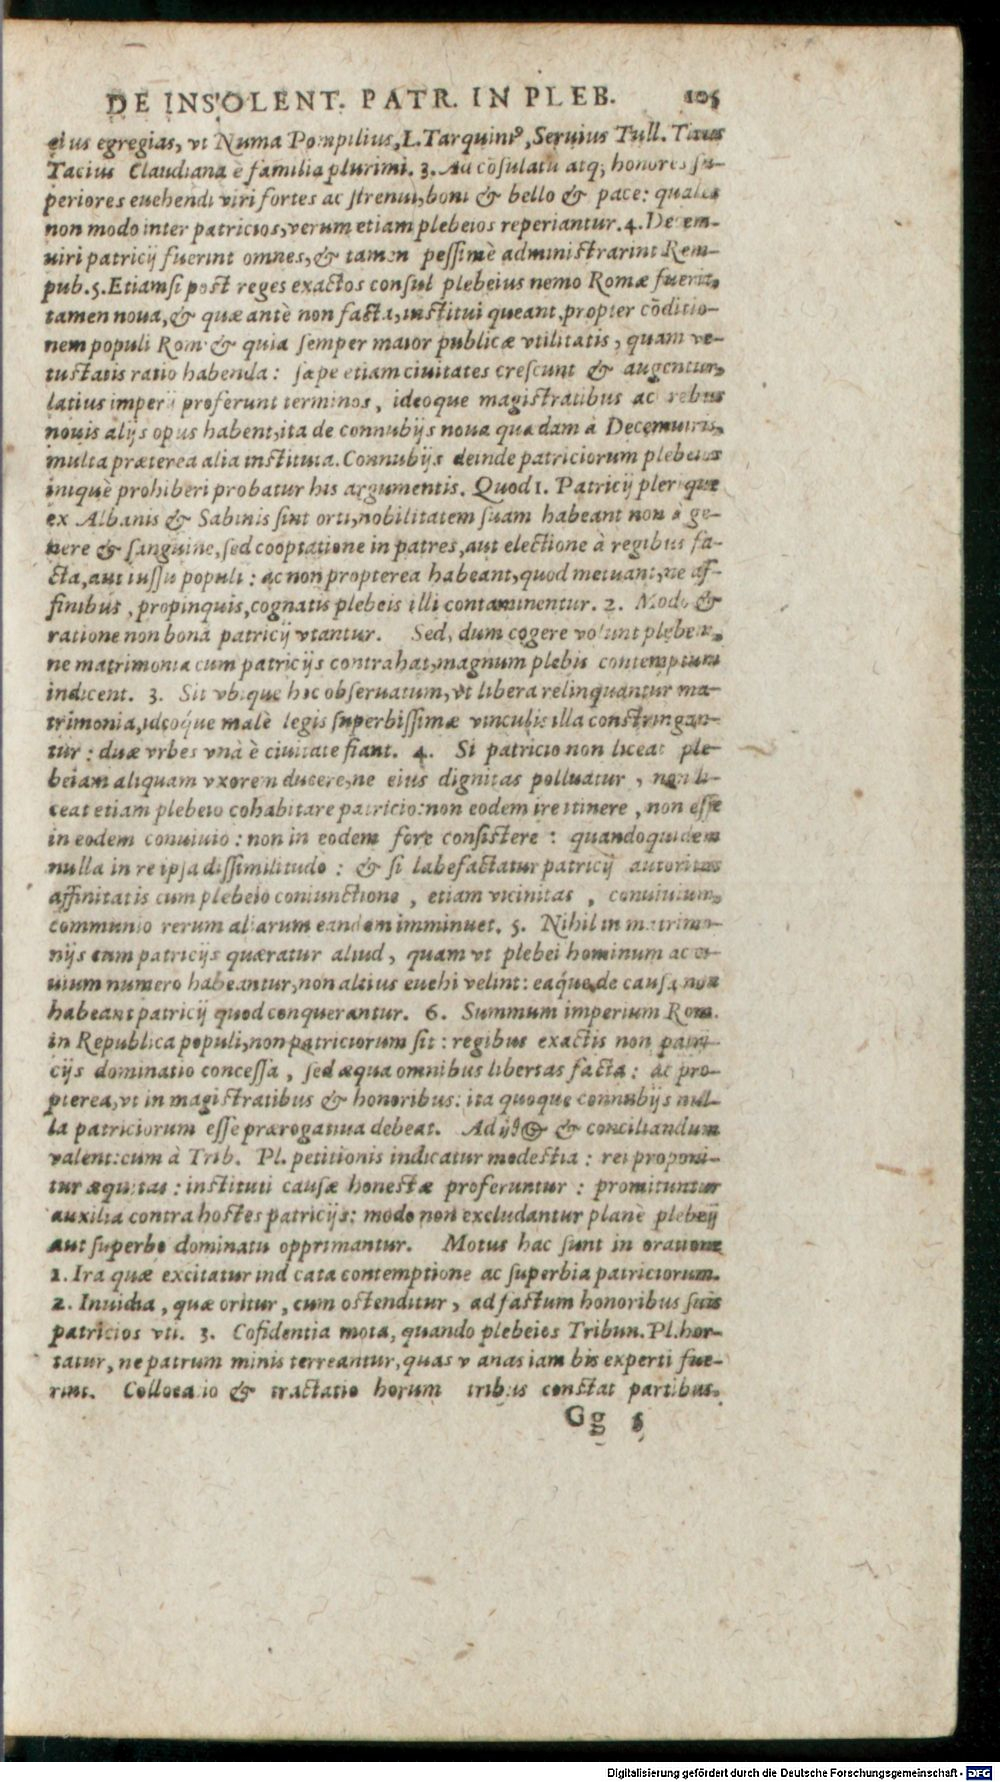 DE INSOLENT. PATR. IN PLEB. 105
eius egregias, vt Numa Pompilius, L. Tarquini⁹, Seruius Tull. Titus
Tacius Claudiana è familia plurimi. 3. Ad cōsulatū atq; honores su-
periores euehendi viri fortes ac strenui, boni & bello & pace: quales
non modo inter patricios, verum etiam plebeios reperiantur. 4. Decem-
uiri patricij fuerint omnes, & tamen pessimè administrarint Rem-
pub. 5. Etiamsi post reges exactos consul plebeius nemo Romæ fuerit,
tamen noua, & quæ antè non facta, institui queant, propter cōditio-
nem populi Rom. & quia semper maior publicæ vtilitatis, quam ve-
tustatis ratio habenda: sæpe etiam ciuitates crescunt & augentur,
latius imperij proferunt terminos, ideoque magistratibus ac rebus
nouis alijs opus habent, ita de connubijs noua quædam à Decemuiris,
multa præterea alia instituta. Connubijs deinde patriciorum plebeios
iniquè prohiberi probatur his argumentis. Quod 1. Patricij plerique
ex Albanis & Sabinis sint orti, nobilitatem suam habeant non à ge-
nere & sanguine, sed cooptatione in patres, aut electione à regibus fa-
cta, aut iussu populi: ac non propterea habeant, quod metuant, ne af-
finibus, propinquis, cognatis plebeis illi contaminentur. 2. Modo &
ratione non bona patricij vtantur. Sed, dum cogere volunt plebem,
ne matrimonia cum patricijs contrahat, magnum plebis contemptum
indicent. 3. Sit vbique hoc obseruatum, vt libera relinquantur ma-
trimonia, ideoq́ue malè legis superbissimæ vinculis illa constringan-
tur: duæ vrbes vnà è ciuitate fiant. 4. Si patricio non liceat ple-
beiam aliquam vxorem ducere, ne eius dignitas polluatur, non li-
ceat etiam plebeio cohabitare patricio: non eodem ire itinere, non esse
in eodem conuiuio: non in eodem fore consistere: quandoquidem
nulla in re ipsa dissimilitudo: & si labefactatur patricij autoritas
affinitatis cum plebeio coniunctione, etiam vicinitas, conuiuium,
communio rerum aliarum eandem imminuet. 5. Nihil in matrimo-
nijs cum patricijs quæratur aliud, quam vt plebei hominum ac ci-
uium numero habeantur, non altius euehi velint: eaq́ue de causa non
habeant patricij quod conquerantur. 6. Summum imperium Rom.
in Republica populi, non patriciorum sit: regibus exactis non patri-
cijs dominatio concessa, sed æqua omnibus libertas facta: ac pro-
pterea, vt in magistratibus & honoribus: ita quoque connubijs nul-
la patriciorum esse prærogatiua debeat. Ad & conciliandum
valent: cum à Trib. Pl. petitionis indicatur modestia: rei proponi-
tur æquitas: instituti causæ honestæ proferuntur: promittuntur
auxilia contra hostes patricijs: modo non excludantur planè plebeij
aut superbo dominatu opprimantur. Motus hac sunt in oratione
1. Ira quæ excitatur indicata contemptione ac superbia patriciorum.
2. Inuidia, quæ oritur, cum ostenditur, ad fastum honoribus suis
patricios vti. 3. Cōfidentia mota, quando plebeios Tribun. Pl. hor-
tatur, ne patrum minis terreantur, quas vanas iam bis experti fue-
rint. Collocatio & tractatio horum tribus constat partibus.
Gg 5
Digitalisierung gefördert durch die Deutsche Forschungsgemeinschaft - DFG